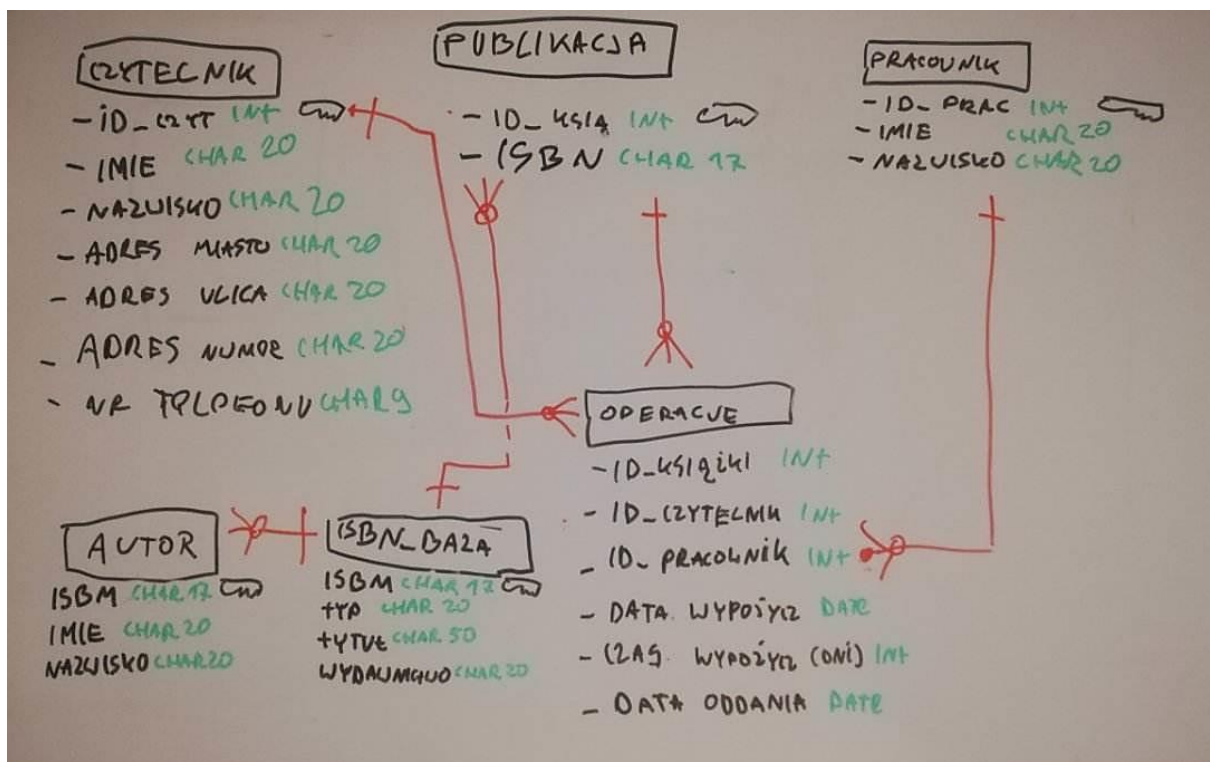 CZYTECNIK
- ID_CZYT INT
- IMIE CHAR 20
- NAZWISKO CHAR 20
- ADRES MIASTO CHAR 20
- ADRES ULICA CHAR 20
- ADRES NUMER CHAR 20
- NR TELEFONU CHAR 9
PUBLIKACJA
- ID_KSIĄ INT
- ISBN CHAR 17
PRACOWNIK
- ID_PRAC INT
- IMIE CHAR 20
- NAZWISKO CHAR 20
OPERACJE
- ID_KSIĄŻKI INT
- ID_CZYTELNIK INT
- ID_PRACOWNIK INT
- DATA WYPOŻYCZ DATE
- CZAS WYPOŻYCZ (DNI) INT
- DATA ODDANIA DATE
AUTOR
ISBM CHAR 17
IMIE CHAR 20
NAZWISKO CHAR 20
ISBN_BAZA
ISBM CHAR 17
TYP CHAR 20
TYTUŁ CHAR 50
CHAR 20